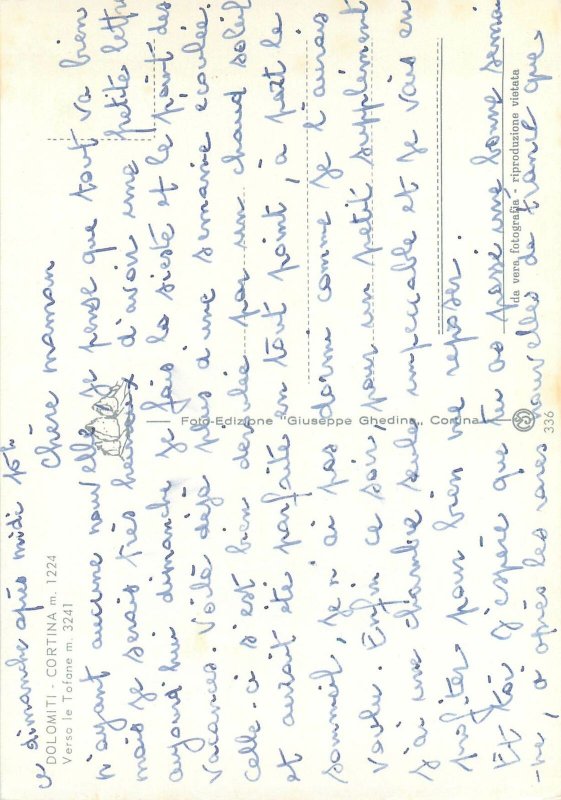 ce dimanche après midi 15h
Chère maman
n'ayant aucune nouvelle je pense que tout va bien
mais je serais très heureux d'avoir une petite lettre
aujourd'hui dimanche je fais la sieste et le point des
vacances. Voilà déjà plus d'une semaine écoulée.
celle-ci s'est bien déroulée par un chaud soleil
et aurait été parfaite en tout point, à part le
sommeil, je n'ai pas dormi comme je l'aurais
voulu. Enfin ce soir, pour un petit supplément
j'ai une chambre seule impeccable et je vais en
profiter pour bien me reposer.
Et toi j'espère que tu as passé une bonne semai
-ne, d'après les rares nouvelles de France que
DOLOMITI - CORTINA m. 1224
Verso le Tofane m. 3241
Foto-Edizione "Giuseppe Ghedina,, Cortina
336
da vera fotografia - riproduzione vietata